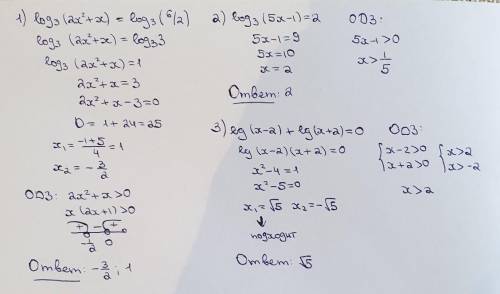 1) log₃(2x²+x) = log₃(6/2)
log₃(2x²+x) = log₃3
log₃(2x²+x) = 1
2x²+x = 3
2x²+x-3=0
D = 1+24=25
x₁ = (-1+5)/4 = 1
x₂ = -3/2
ОДЗ: 2x²+x>0
x(2x+1)>0
+ - +
-1/2 0
Ответ: -3/2; 1
2) log₃(5x-1)=2
5x-1=9
5x=10
x=2
Ответ: 2
ОДЗ:
5x-1>0
x>1/5
3) lg(x-2)+lg(x+2)=0
lg(x-2)(x+2)=0
x²-4=1
x²-5=0
x₁=√5 x₂=-√5
подходит
Ответ: √5
ОДЗ:
{x-2>0 {x>2
{x+2>0 {x>-2
x>2